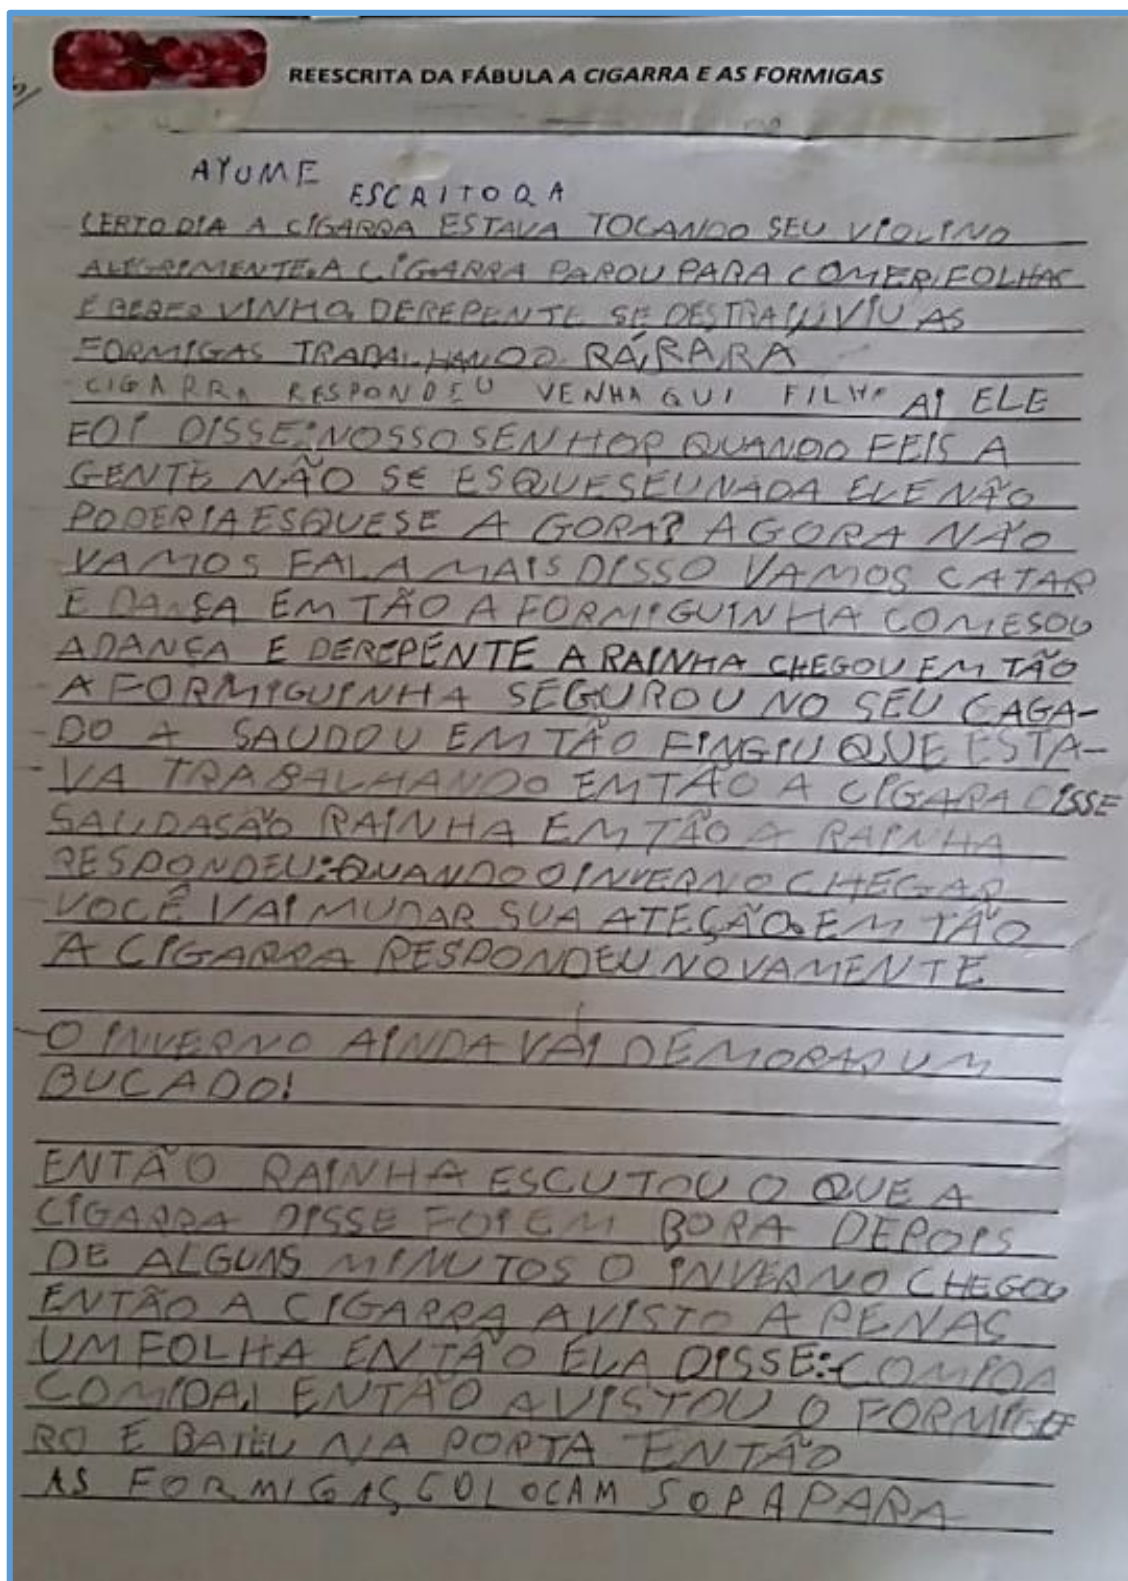 REESCRITA DA FÁBULA A CIGARRA E AS FORMIGAS
AYUME ESCRITORA
CERTO DIA A CIGARRA ESTAVA TOCANDO SEU VIOLINO
ALEGRIMENTE. A CIGARRA PAROU PARA COMER FOLHAS
E BEBER VINHO, DEREPENTE SE DESTRAIU VIU AS
FORMIGAS TRABALHANDO RÁ, RARÁ
CIGARRA RESPONDEU VENHA QUI FILHA AI ELE
FOI DISSE: NOSSO SENHOR QUANDO FEIS A
GENTE NÃO SE ESQUESEU NADA ELE NÃO
PODERIA ESQUESE A GORA? AGORA NÃO
VAMOS FALA MAIS DISSO VAMOS CATAR
E DANSA EM TÃO A FORMIGUINHA COMESOU
A DANÇA E DEREPENTE A RAINHA CHEGOU EM TÃO
A FORMIGUINHA SEGUROU NO SEU CAGA-
DO A SAUDOU EM TÃO FINGIU QUE ESTA-
VA TRABALHANDO EMTÃO A CIGARA DISSE
SAUDASÃO RAINHA EM TÃO A RAINHA
RESPONDEU: QUANDO O INVERNO CHEGAR
VOCÊ VAI MUDAR SUA ATEÇÃO. EM TÃO
A CIGARRA RESPONDEU NOVAMENTE
O INVERNO AINDA VAI DEMORAR UM
BUCADO!
ENTÃO RAINHA ESCUTOU O QUE A
CIGARRA DISSE FOI EM BORA DEPOIS
DE ALGUNS MINUTOS O INVERNO CHEGOU
ENTÃO A CIGARRA AVISTO A PENAS
UM FOLHA ENTÃO ELA DISSE: COMIDA
COMIDA! ENTÃO AVISTOU O FORMIGEI
RO E BATEU NA PORTA ENTÃO
AS FORMIGAS COLOCAM SOPA PARA